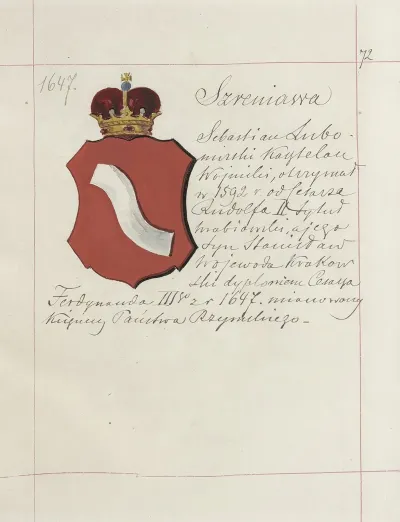 72
1647.
Szreniawa
Sebastian Lubo-
mirski Kasztelan
Wojnicki, otrzymał
w 1592 r od Cesarza
Rudolfa II tytuł
hrabiowski, a jego
syn Stanisław
Wojewoda Krakow
ski dyplomem Cesarza
Ferdynanda III go z r 1647. mianowany
Księciem Państwa Rzymskiego.